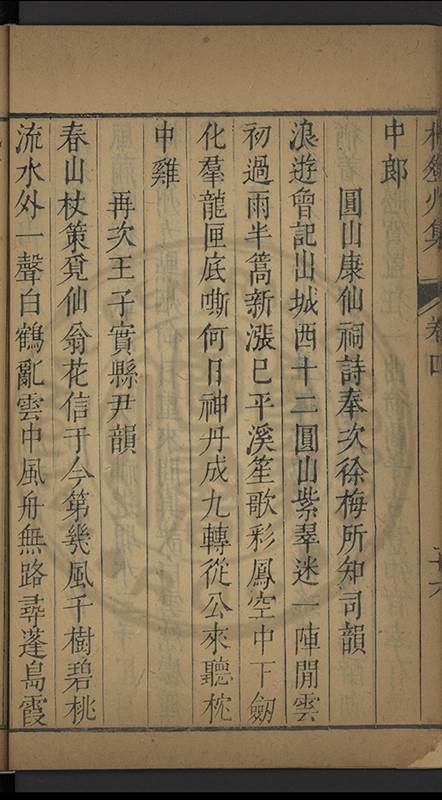 中郎
圓山康仙祠詩奉次徐梅所知司韻
浪遊曾記出城西十二圓山紫翠迷一陣閒雲
初過雨半篙新漲已平溪笙歌彩鳳空中下劒
化羣龍匣底嘶何日神丹成九轉從公來聽枕
中雞
再次王子實縣尹韻
春山杖策覓仙翁花信于今第幾風千樹碧桃
流水外一聲白鶴亂雲中風舟無路尋蓬島霞